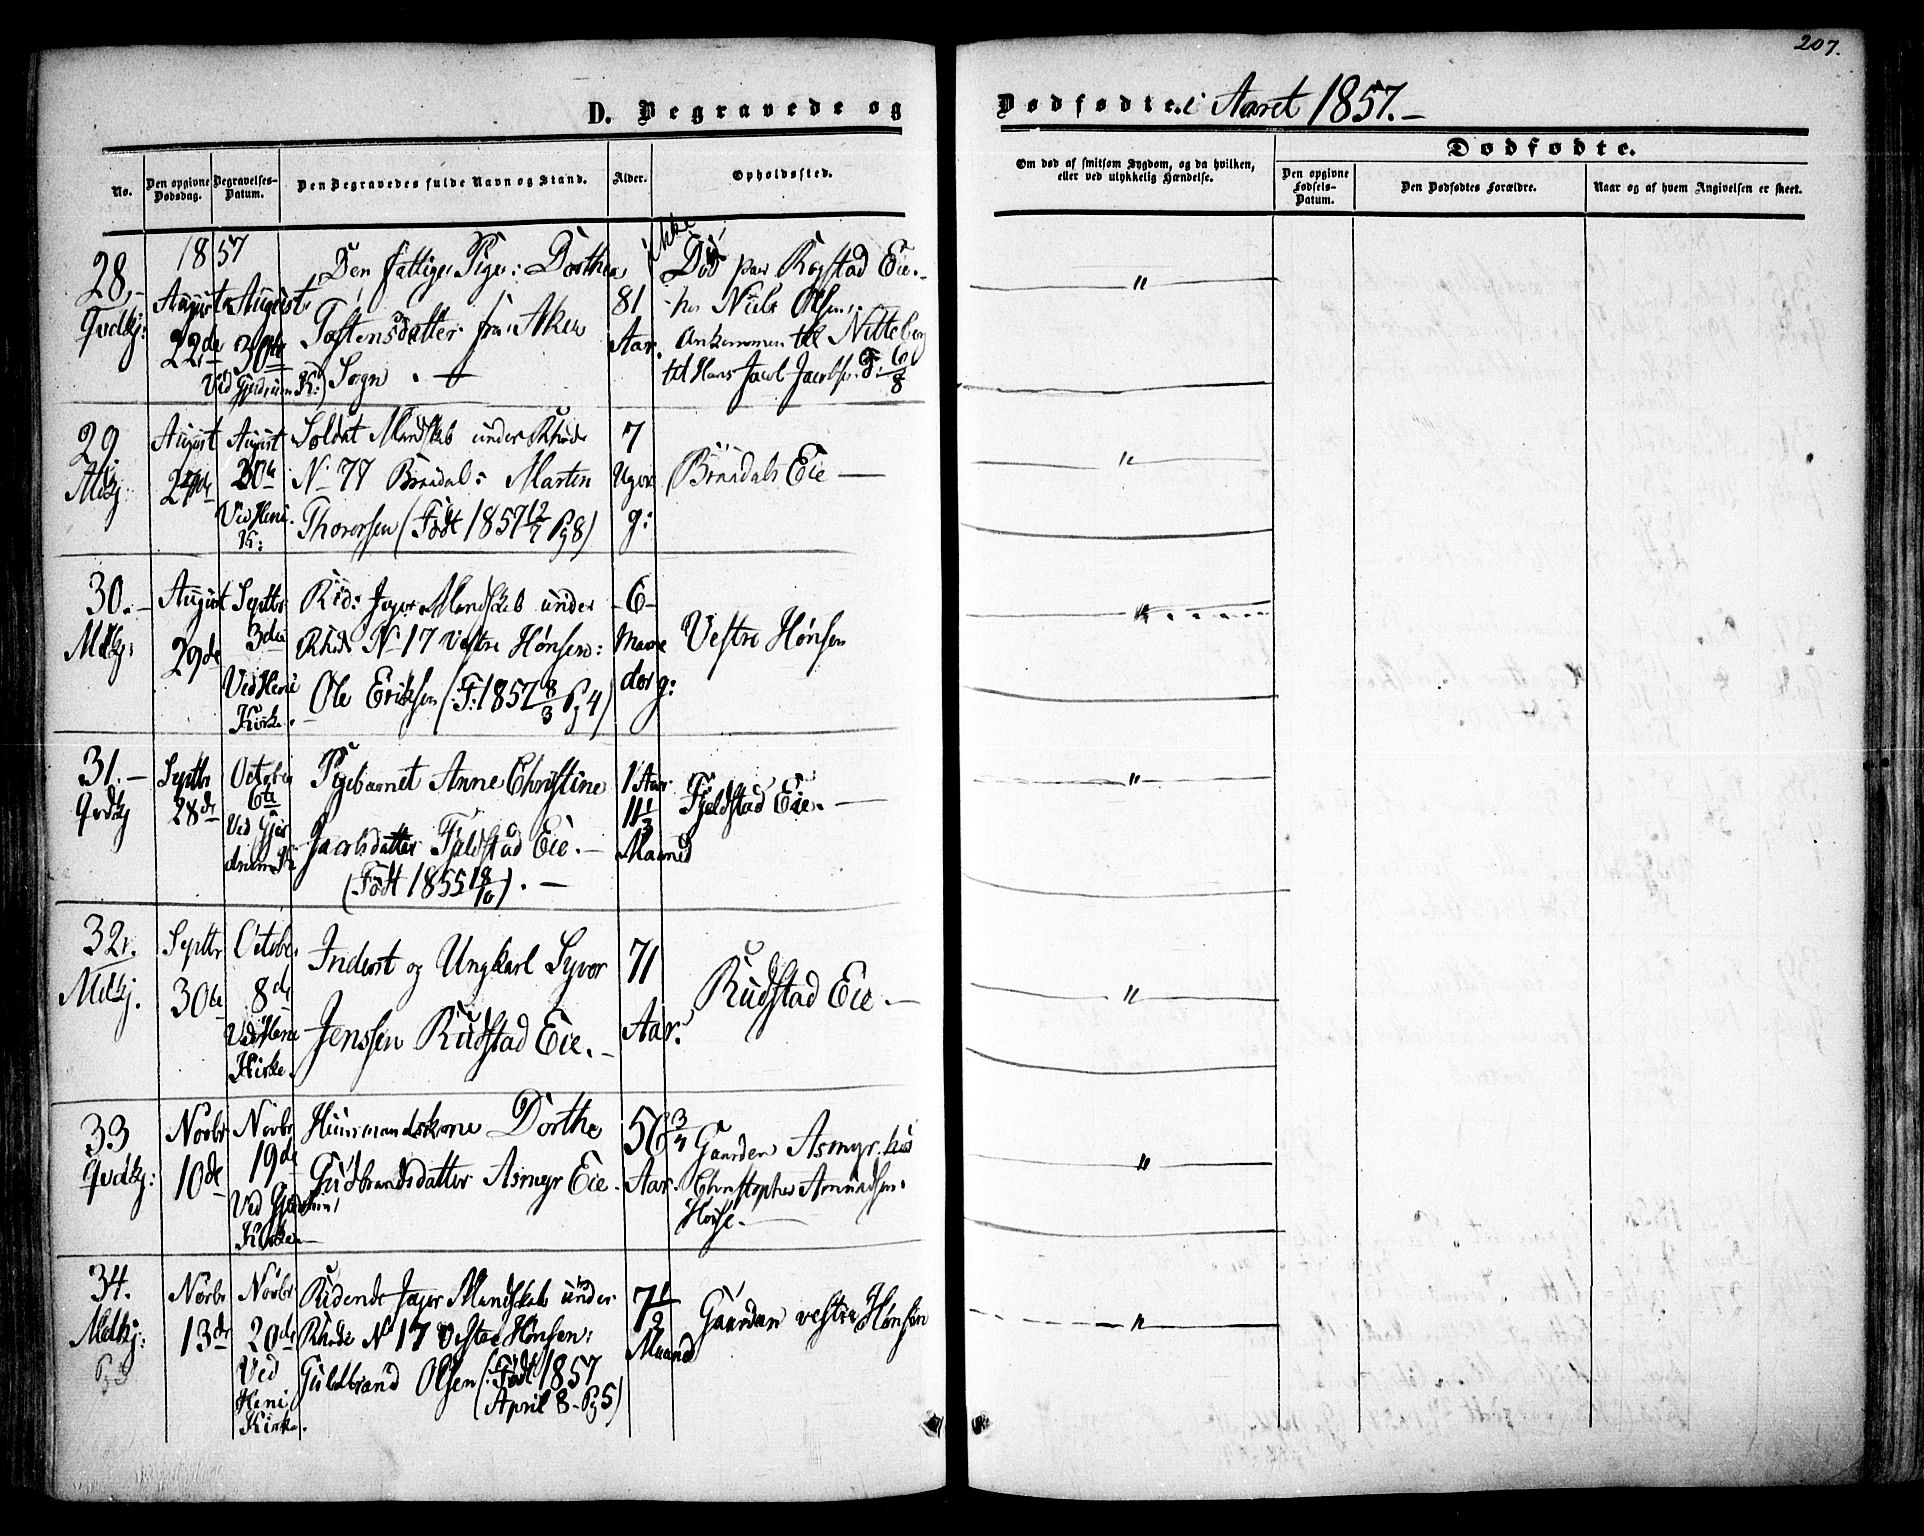 207.
D. Begravede og Dødfødte i Aaret 1857.-
No.
Den opgivne Dødsdag.
Begravelses-Datum.
Den Begravedes fulde Navn og Stand.
Alder.
Opholdssted.
Om død af smitsom Sygdom, og da hvilken,
eller ved ulykkelig Hændelse.
Dødfødte.
Den opgivne Fødsels-Datum.
Den Dødfødtes Forældre.
Naar og af hvem Angivelsen er skeet.
1857
28,-
Qvdkj:
August
22de
August
30te
Ved Gjerdrum K:)
Den fattige Pige: Dorthea
Tostensdatter fra Aker
Sogn. -
81
Aar.
ikke
Død paa Rogstad Eie.-
hos Niels Olsen,
Ankommen til Nitteberg
til Hans Jacob Jacobsen
29.
Mdkj
August
27de
August
30te
Ved Heni
K:
Soldat Mandskab under Rhode
No 77 Braadal: Martin
Thorersen (Født 1857 12/7 Pg 8)
7
Uger
g:
Braadals Eie -
30.-
Mdkj:
August
29de
Septbr
3die
Ved Heni
Kirke.
Rid: Jæger Mandskab under
Rhode No 17 Vestre Hønsen:
Ole Eriksen (F: 1857 8/3 Pg 4)
-6-
Maane
der g:
Vestre Hønsen
31.-
Qvdkj
Septbr
28de
October
6te
Ved Gjer
drum K:
Pigebarnet Anne Christine
Jacobsdatter Fjeldstad Eie.-
(Født 1855 18/10). -
1 Aar
11 1/3
Maaned
Fjeldstad Eie. -
32.
Mdkj.
Septbr
30te
Octobr.
8de
Ved Heni
Kirke.
Inderst og Ungkarl Syver
Jenssen Rudstad Eie.-
71
Aar.
Rudstad Eie.-
33
Qvdkj:
Novbr
10de
Novbr
19de
Ved Gjerdrum
Kirke.-
Huusmandskone Dorthe
Gudbrandsdatter Asmyr Eie.
56 3/4
Aar.
Gaarden Asmyr hos
Christopher Amundsen
34.
Mdkj:
Novbr
13de
Novbr
20de
Ved
Heni
Kirke.
Ridende Jæger Mandskab under
Rhode No 17 Vestre Hønsen:
Guldbrand Olsen (: Født 1857
April 8 - Pg 5)
7 1/2
Maaned
Gaarden vestre Hønsen